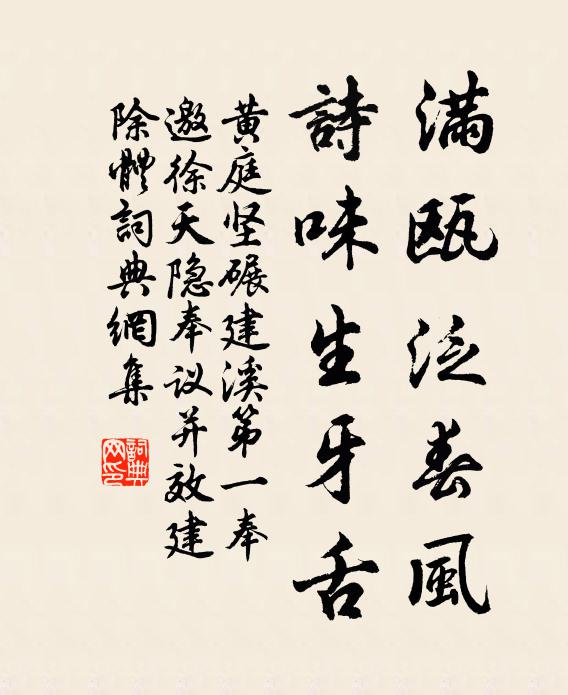 满瓯泛春風
詩味生牙舌
黄庭坚碾建溪第一奉
邀徐天隐奉议并效建
除體詞典網集
詞典網印